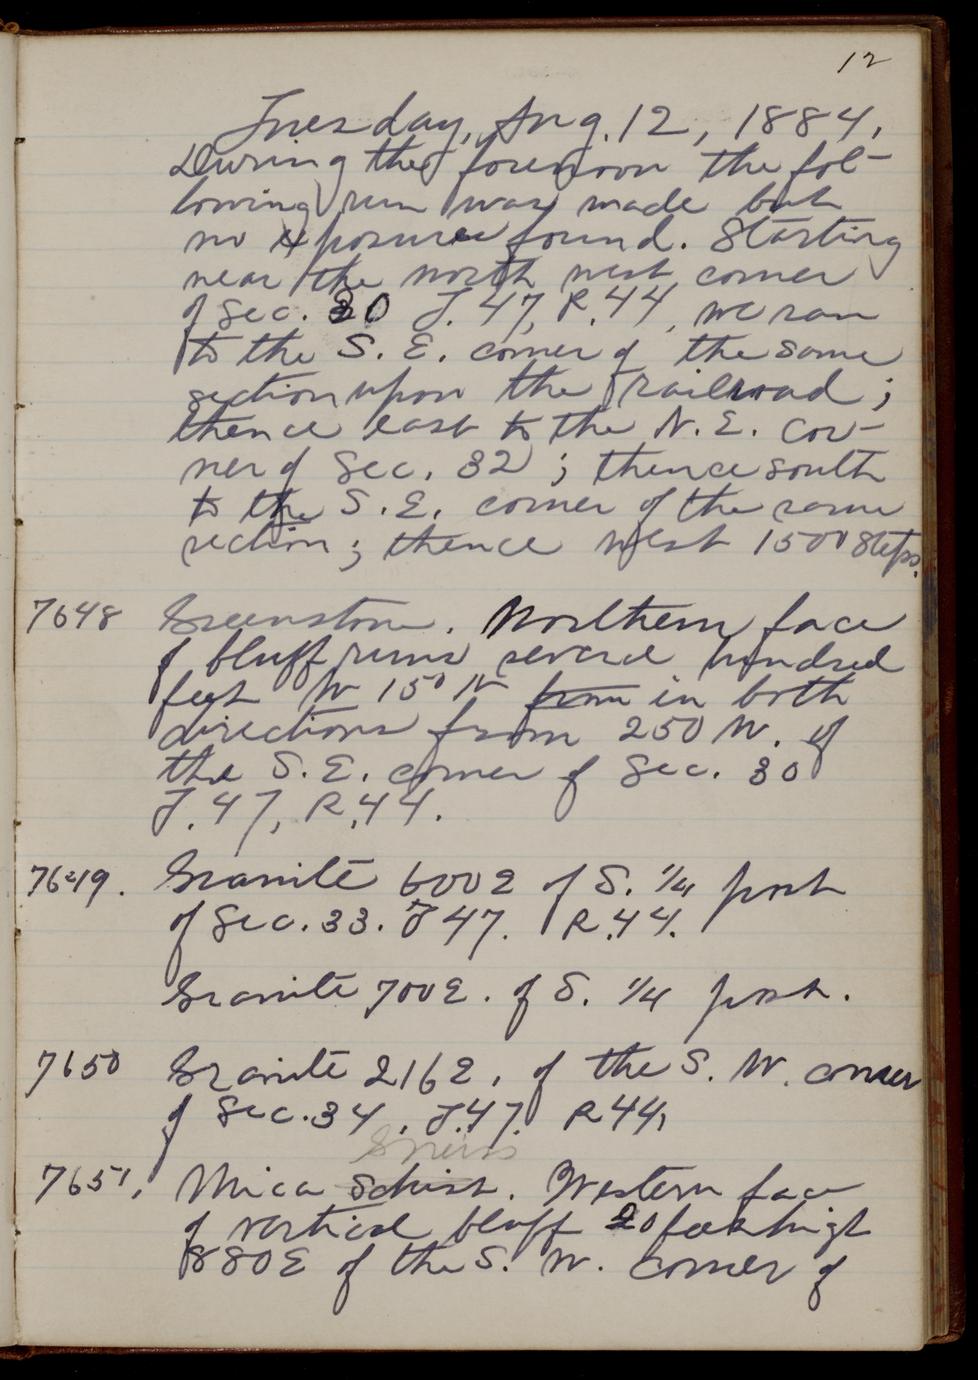 12
Tuesday, Aug. 12, 1884.
During the forenoon the fol-
lowing run was made but
no exposures found. Starting
near the north west corner
of Sec. 30 T. 47, R. 44, we ran
to the S. E. corner of the same
section upon the railroad;
thence east to the N. E. cor-
ner of Sec. 32; thence south
to the S. E. corner of the same
section; thence west 1500 steps.
7648 Greenstone. Northern face
of bluff runs several hundred
feet W 15° N from in both
directions from 250 W. of
the S. E. corner of Sec. 30
T. 47, R. 44.
7649. Granite 600 E of S. 1/4 post
of Sec. 33. T 47. R. 44.
Granite 700 E. of S. 1/4 post.
7650 Granite 216 E. of the S. W. corner
of Sec. 34, T. 47. R 44,
Gneiss
7651. Mica Schist. Western face
of vertical bluff 20 feet high
880 E of the S. W. corner of